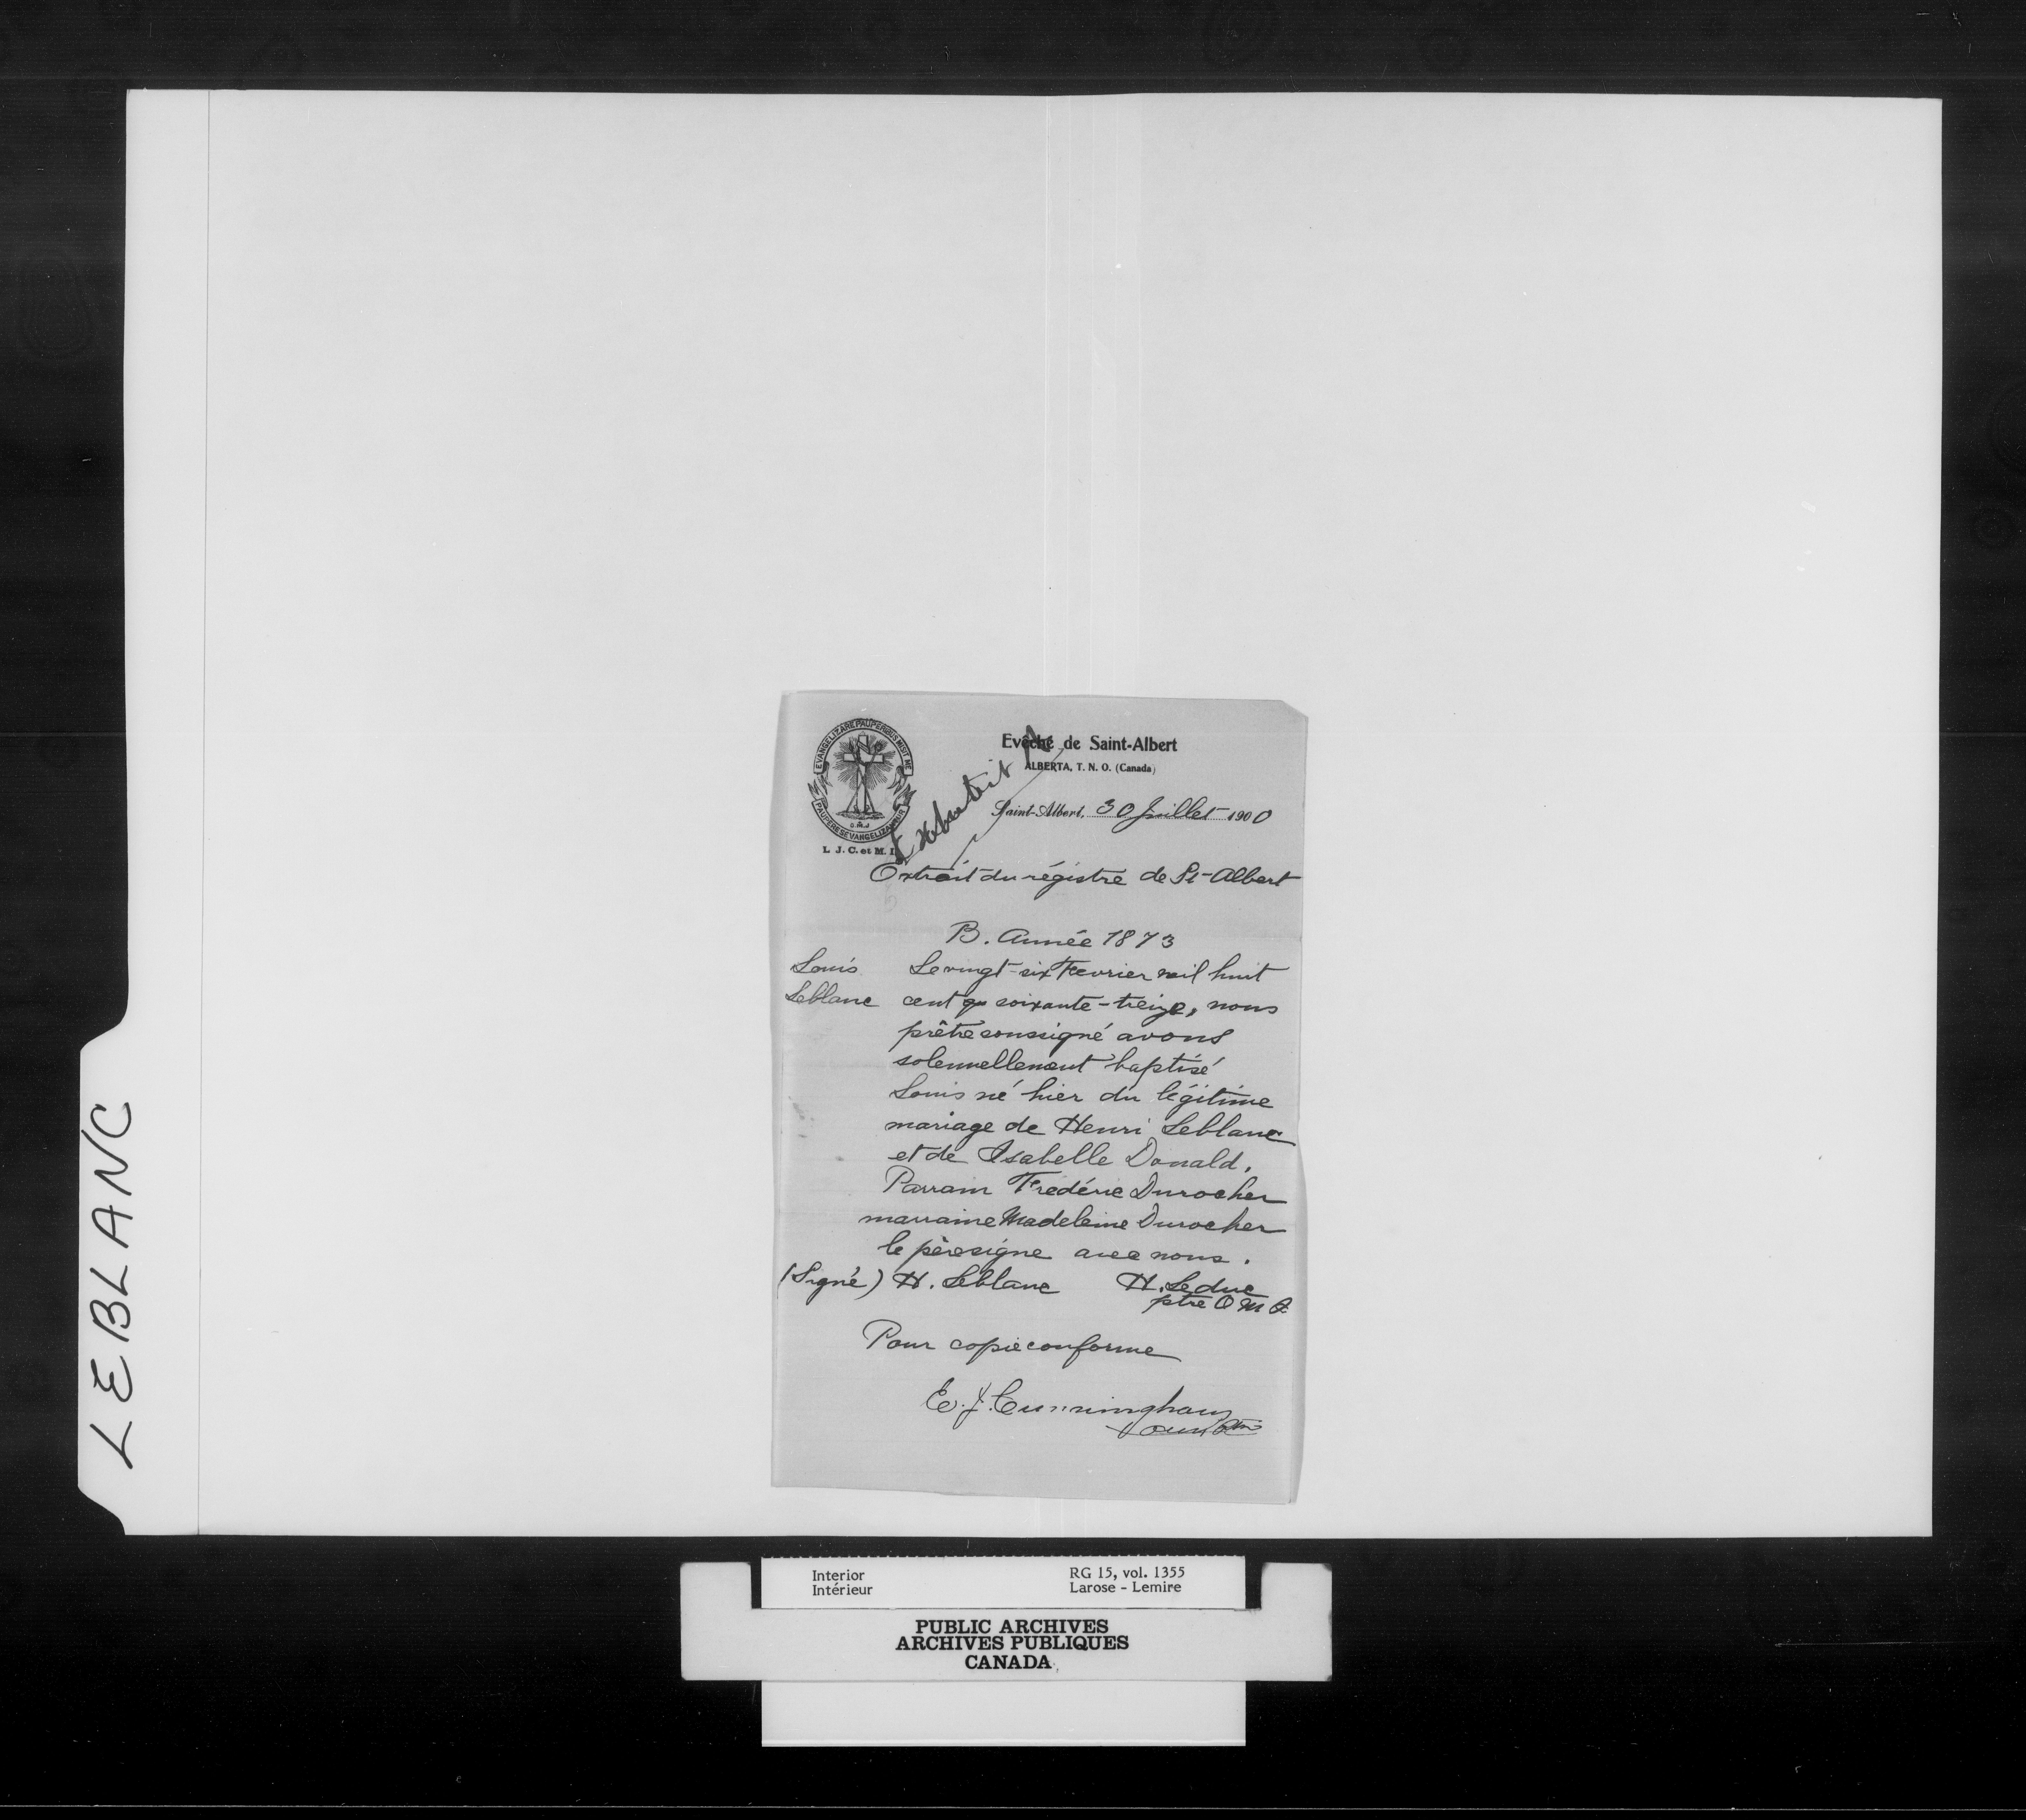 LEBLANC
EVANGELIZARE PAUPERIBUS MISIT ME
PAUPERES EVANGELIZANTUR
L. J. C. et M. I.
Exhibit A
Evêché de Saint-Albert
ALBERTA, T. N. O. (Canada)
Saint-Albert, 30 Juillet 1900
Extrait du régistre de St-Albert
B. Année 1873
Louis Le vingt-six Fevrier mil huit
Leblanc cent soixante-treize, nous
prêtre soussigné avons
solennellement baptisé
Louis né hier du légitime
mariage de Henri Leblanc
et de Isabelle Donald.
Parrain Frédéric Durocher
marraine Madeleine Durocher
le père signe avec nous.
(Signé) H. Leblanc H. Leduc
ptre O M I
Pour copie conforme
E. J. Cunningham
Interior RG 15, vol. 1355
Intérieur Larose - Lemire
PUBLIC ARCHIVES
ARCHIVES PUBLIQUES
CANADA